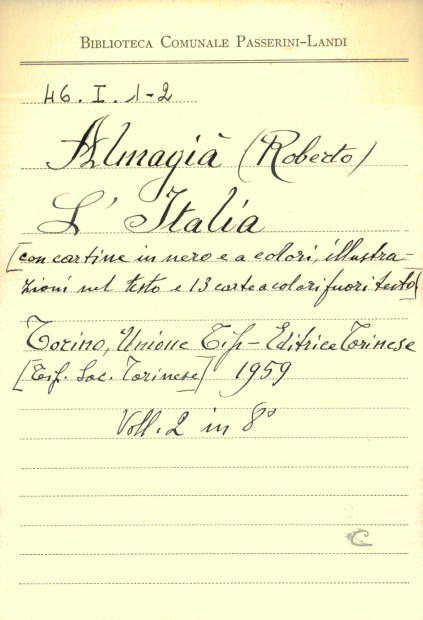 BIBLIOTECA COMUNALE PASSERINI-LANDI
46. I. 1-2
Almagià (Roberto)
L' Italia
[con cartine in nero e a colori, illustra-
zioni nel testo e 13 carte a colori fuori testo]
Torino, Unione Tip-Editrice Torinese
[Tip. Soc. Torinese] 1959
Voll. 2 in 8°
C